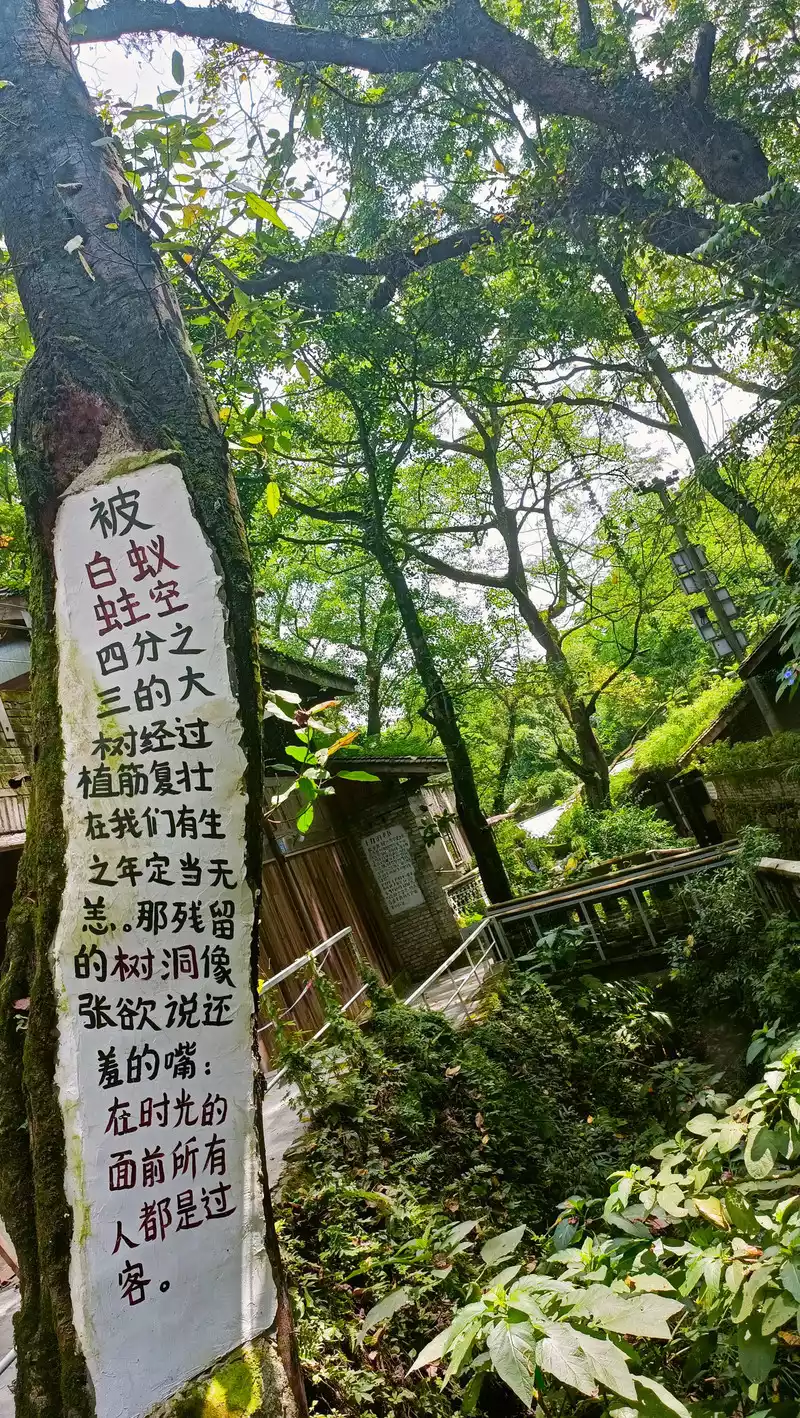 被
白蚁
蛀空
四分之
三的大
树经过
植筋复壮
在我们有生
之年定当无
恙。那残留
的树洞像
张欲说还
羞的嘴：
在时光的
面前所有
人都是过
客。